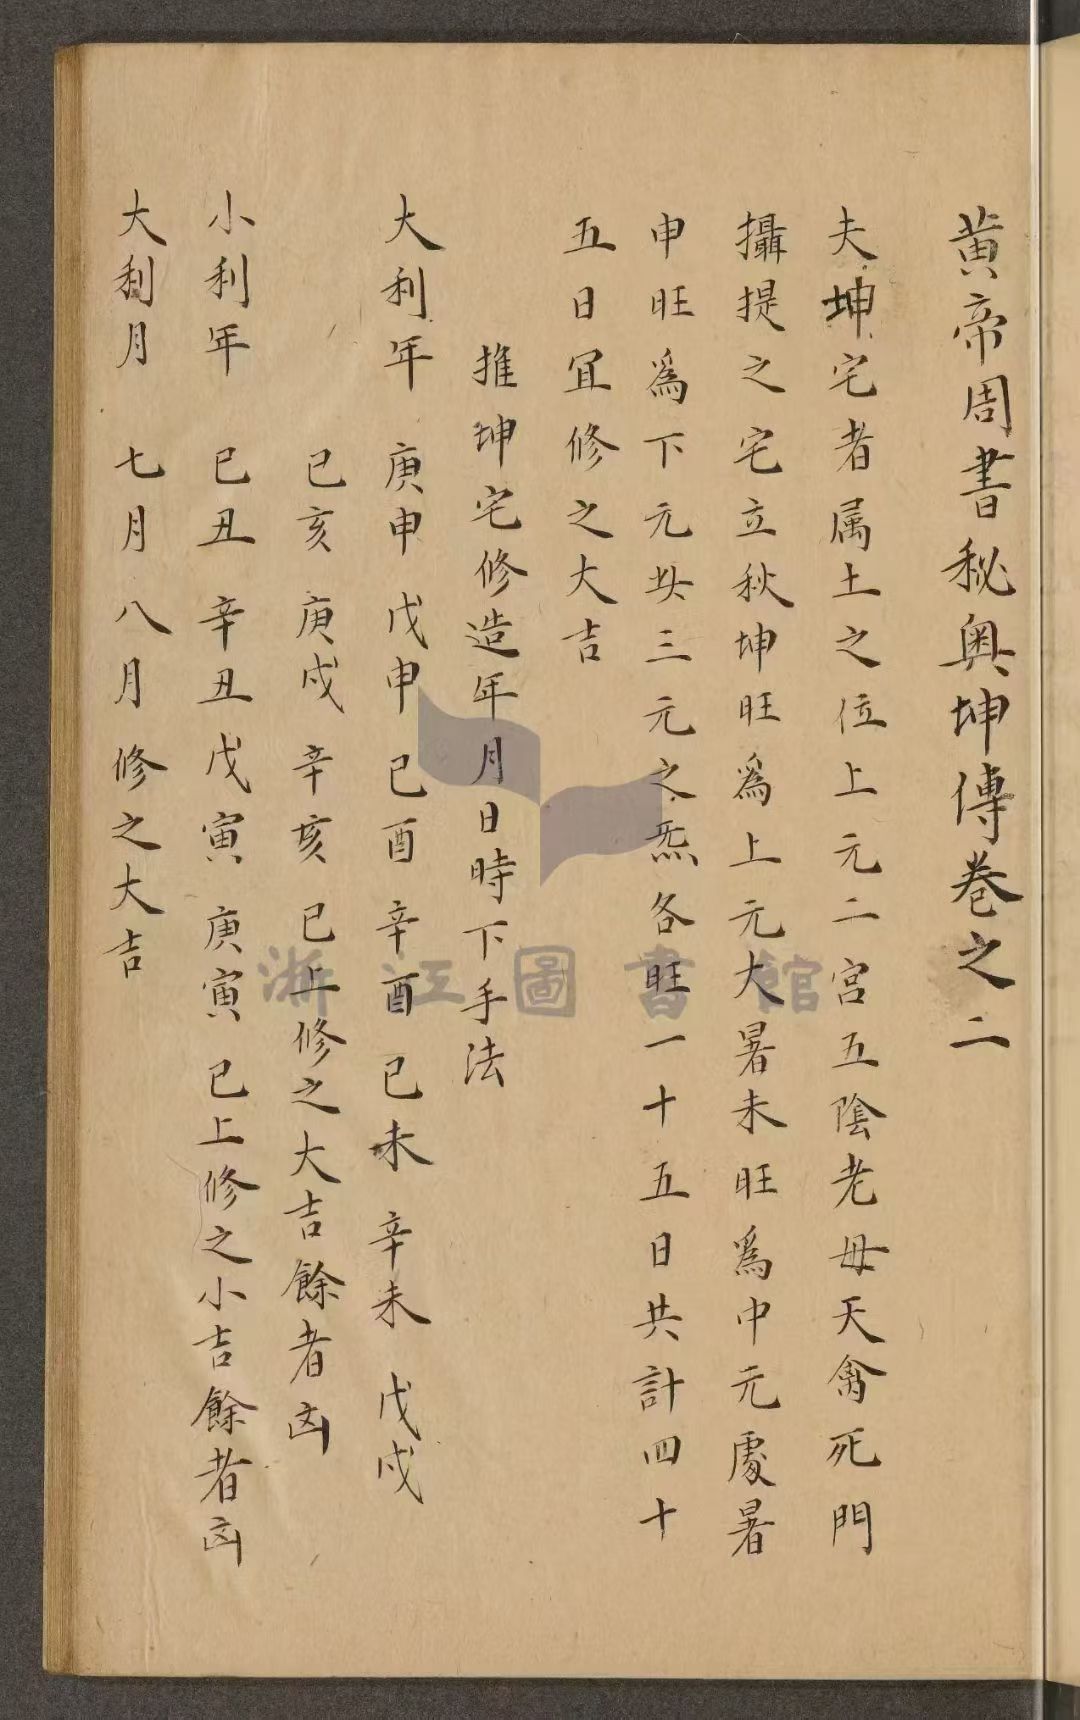 黄帝周書秘奥坤傳卷之二
夫坤宅者属土之位上元二宮五陰老母天禽死門
攝提之宅立秋坤旺爲上元大暑未旺爲中元處暑
申旺爲下元共三元之炁各旺一十五日共計四十
五日宜修之大吉
推坤宅修造年月日時下手法
大利年 庚申 戊申 己酉 辛酉 己未 辛未 戊戌
己亥 庚戌 辛亥 已上修之大吉餘者凶
小利年 己丑 辛丑 戊寅 庚寅 已上修之小吉餘者凶
大利月 七月 八月 修之大吉
浙江圖書館